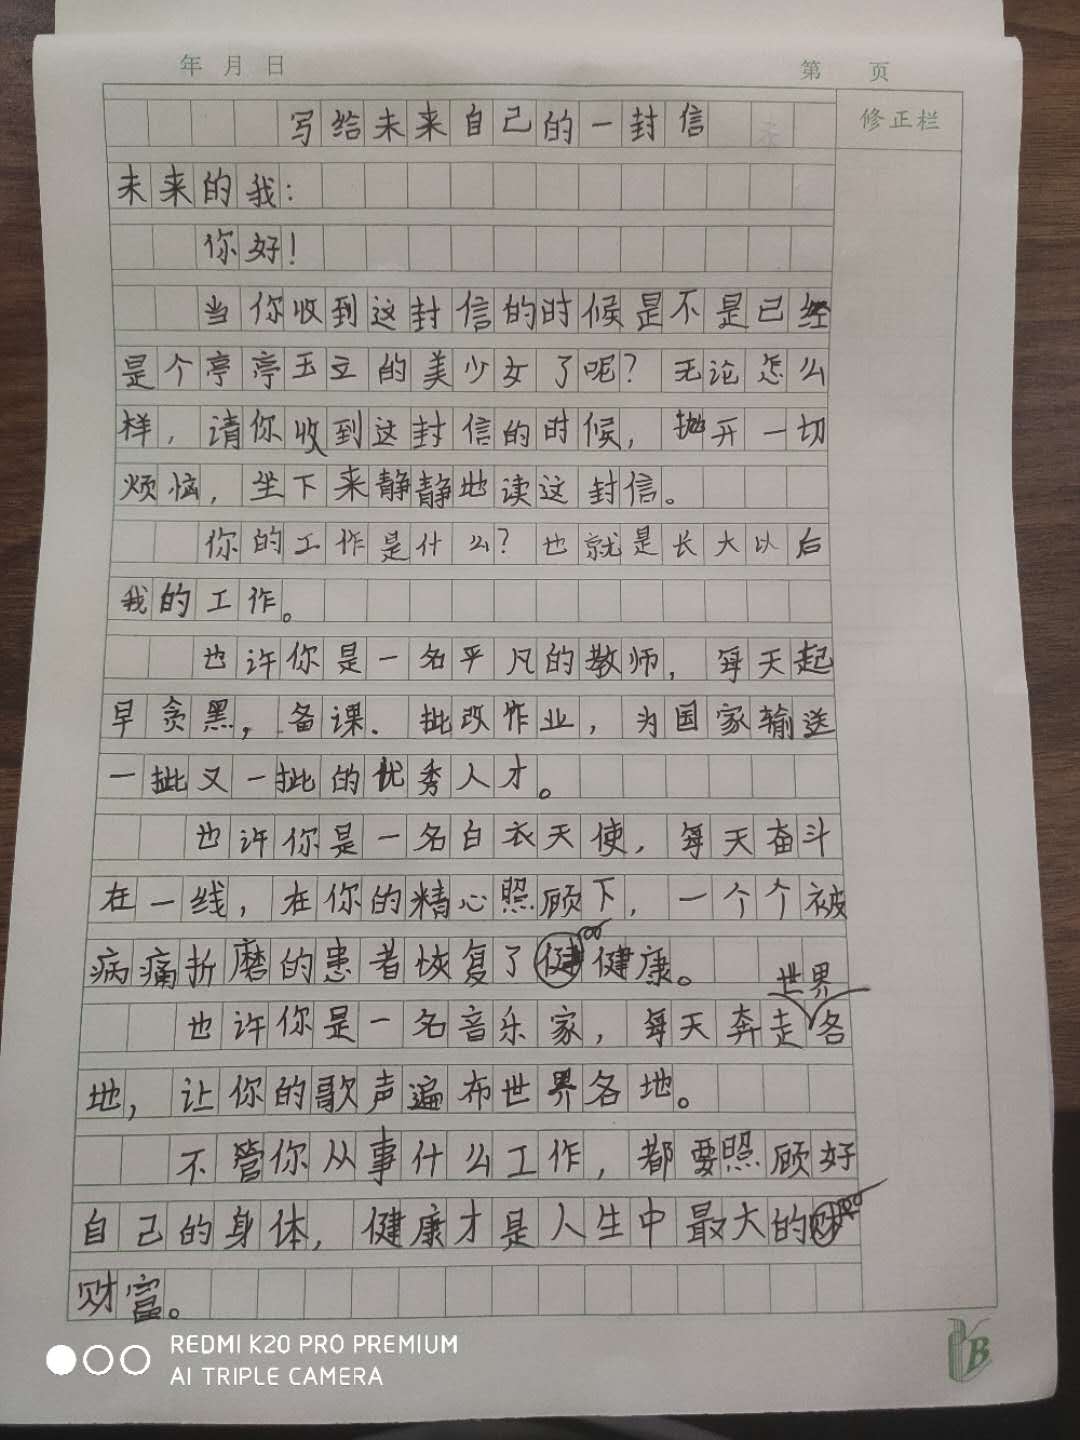 年 月 日
第 页
写给未来自己的一封信
修正栏
未来的我:
你好!
当你收到这封信的时候是不是已经
是个亭亭玉立的美少女了呢?无论怎么
样,请你收到这封信的时候,抛开一切
烦恼,坐下来静静地读这封信。
你的工作是什么?也就是长大以后
我的工作。
也许你是一名平凡的教师,每天起
早贪黑,备课.批改作业,为国家输送
一批又一批的优秀人才。
也许你是一名白衣天使,每天奋斗
在一线,在你的精心照顾下,一个个被
病痛折磨的患者恢复了健康。
也许你是一名音乐家,每天奔走世界各
地,让你的歌声遍布世界各地。
不管你从事什么工作,都要照顾好
自己的身体,健康才是人生中最大的
财富。
B
REDMI K20 PRO PREMIUM
AI TRIPLE CAMERA